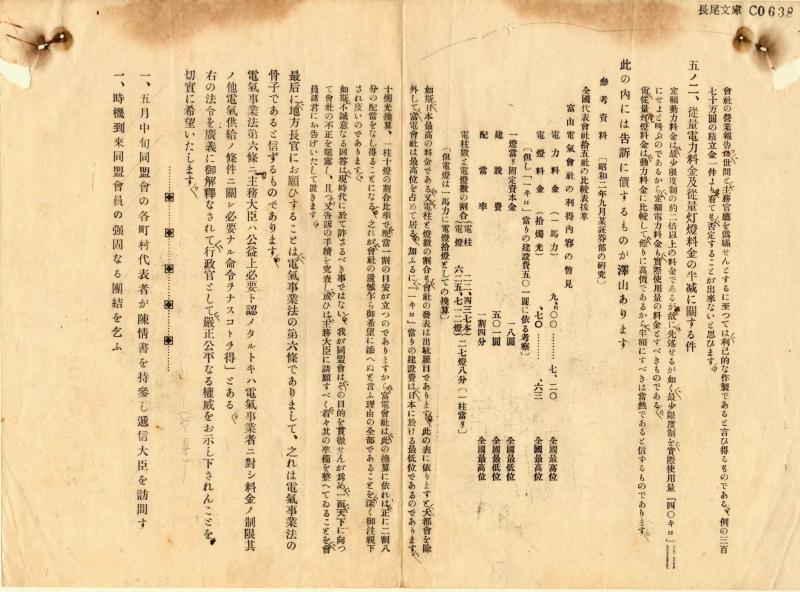 長尾文庫 C0638
會社の營業報告は世間と主務官廳を僞瞞せんとするに至つては利己的な作製であると言ひ得るものである。例の三百
七十万圓の積立金一件より看ても否定することが出來ないと思ひます。
五ノ二、從量電力料金及從量灯燈料金の半减に關する件
定額動力料金は最少限度制の約二倍以上の料金であるが故に先述せるが如く最少限度制を實際使用量「四〇キロ」
にせよと叫ぶのであるから定額電力料金も實際使用量の料金とすべきものである。
電從量灯燈料金は動力料金に比較して餘りに高價であるから半額にすべきは當然であると信するものであります。
此の内には告訴に價するものが澤山あります
參考資料 〔昭和二年九月某証券部の研究〕
全國代表會社拾五社の比較表拔萃
富山電氣會社の利得内容の瞥見
電力料金(一馬力) 九、〇〇………七、二〇 全國最高位
電燈料金(拾燭光) 、七〇………、六三 全國最高位
〔但し「一キロ」當りの建設費五〇一圓に依る考察〕
一燈當り固定資本金 一八圓 全國最低位
建設費 五〇一圓 全國最低位
配當率 一割四分 全國最高位
電柱數と電燈數の割合(電柱 二二、四三七本)(電燈 六二五、七一二燈) 二七燈八分〔一柱當り〕
〔但電燈は一馬力に電燈拾燈としての換算〕
如斯日本最高の料金である又電柱と燈數の割合も會社の發表は出駄羅目であります。此の表に依りますと大都會を除
外して富電會社は最高位を占めて居る、加ふるに「一キロ」當りの建設費は日本に於ける最低位であるのであります。
十燭光換算、一柱十燈の割合比率で配當一割の目安が立つのでありますから富電會社は此の換算に依れば正に二割八
分の配當をなし得ることになる。之れが會社の遺憾乍ら御希望に添へぬと言ふ理由の全部であることを深く御注視下
され度いのであります。
如斯不誠意なる回答は現時代に於て許さるべき事ではない。我が同盟會は此の目的を貫徹せんが爲め一面天下に向つ
て會社の不正を曝露し、且つ又告訴の手續を完査し或ひは主務大臣に請願すべく着々其の準備を整へてゐることを會
員諸君にお告げいたして置きます。
最后に地方長官にお願ひすることは電氣事業法の第六條でありまして、之れは電氣事業法の
骨子であると信ずるものであります。
電氣事業法第六條ニ「主務大臣ハ公益上必要ト認メタルトキハ電氣事業者ニ對シ料金ノ制限其
ノ他電氣供給ノ條件ニ關シ必要ナル命令ヲナスコトヲ得」とある。
右の法令を廣義に御解釋なされて行政官として嚴正公平なる權威をお示し下されんことを
切實に希望いたします。
一、五月中旬同盟會の各町村代表者が陳情書を持參し遞信大臣を訪問す
一、時機到來同盟會員の强固なる團結を乞ふ